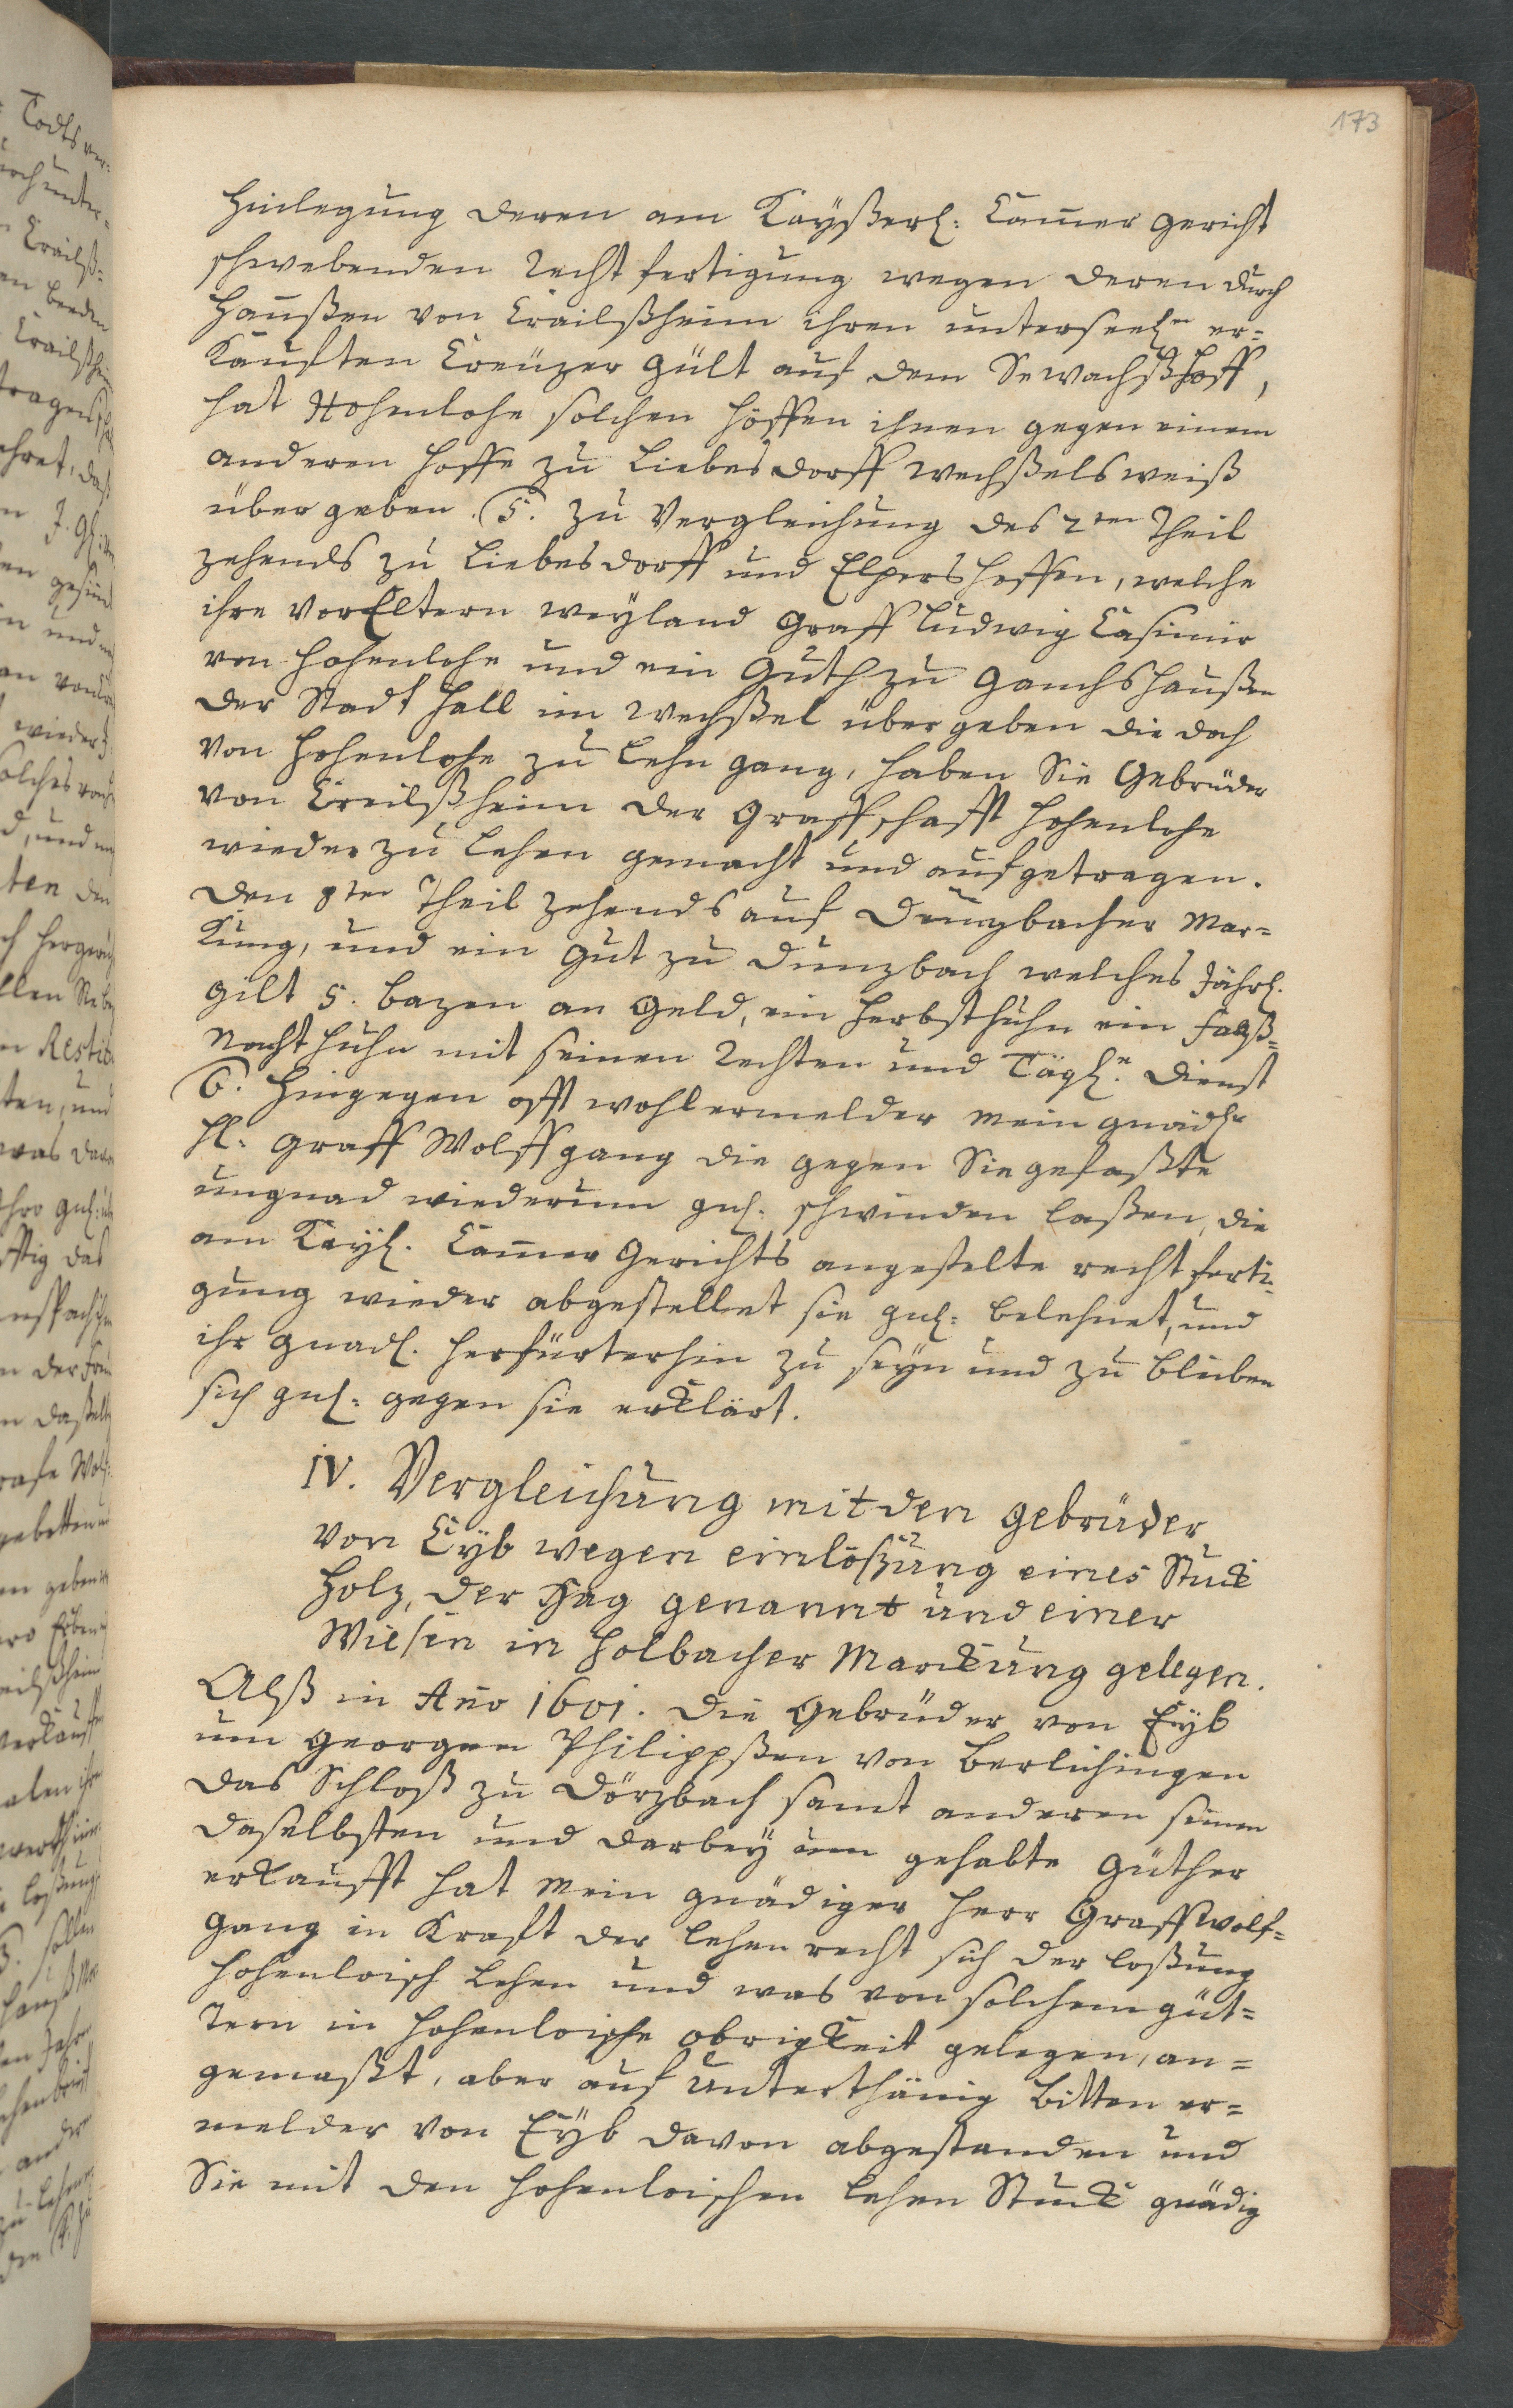 173
Hinlegung deren am Kayßerl: Cam̄er Gericht
schwebenden Rechtfertigung wegen deren durch
Hanßen von Crailßheim ihren unterseelen er=
kaufften Creuzer Gült auf dem Sewachßhoff,
hat Hohenlohe solchen Höffen ihnen gegen einem
anderen Hoffe zu Liebesdorff wechßelsweiß
übergeben. 5. Zu Vergleichung des 2ten Theil
Zehends zu Liebesdorff und Elpershoffen, welche
ihre VorEltern weyland Graff Ludwig Casimir
von Hohenlohe und ein Guth zu Ganshaußen
der Stadt Hall im Wechßel übergeben die doch
von Hohenlohe zu Lehn gang, haben Sie Gebrüder
von Creilßheim der Graffschafft Hohenlohe
wieder zu Lehen gemacht und aufgetragen.
den 8ten Theil Zehends auf Dünzbacher Mar=
kung, und ein Gut zu Dunzbach welches Jährl.
gilt 5. bazen an Geld, ein Herbsthuhn ein Faß=
nachthuhn mit seinen Rechten und Tägln. Dienst
6. Hingegen offt wohlermelder mein gnädr
H: Graff Wolffgang die gegen Sie gefaßte
ungnad wiederum gnl: schwinden laßen, die
am Kayl. Cam̄er Gerichts angestelte rechtferti=
gung wieder abgestellet sie gnl: belehnet, und
ihr gnädl. Herfürterhin zu seyn und zu bleiben
sich gnl: gegen sie erklärt.
IV. Vergleichung mit den Gebrüder
von Eyb wegen einlößung eines Stuck
Holz, der Hag genannt und einer
Wiesen in Holbacher Marckung gelegen.
Alß in Año 1601. die Gebrüder von Eyb
um Georgen Philippßen von Berlichingen
das Schloß zu Dörzbach samt anderen seinen
daselbsten und darbey um gehabte Güther
erkaufft hat mein gnädiger Herr Graff Wolf=
gang in Kraft der Lehenrecht sich der Loßung
Hohenloisch Lehen und was von solchem Güt=
tern in Hohenloische obrigkeit gelegen, an=
gemaßt, aber auf unterthänig bitten er=
melder von Eyb davon abgestanden und
Sie mit den Hohenloischen Lehen Stuck gnädig